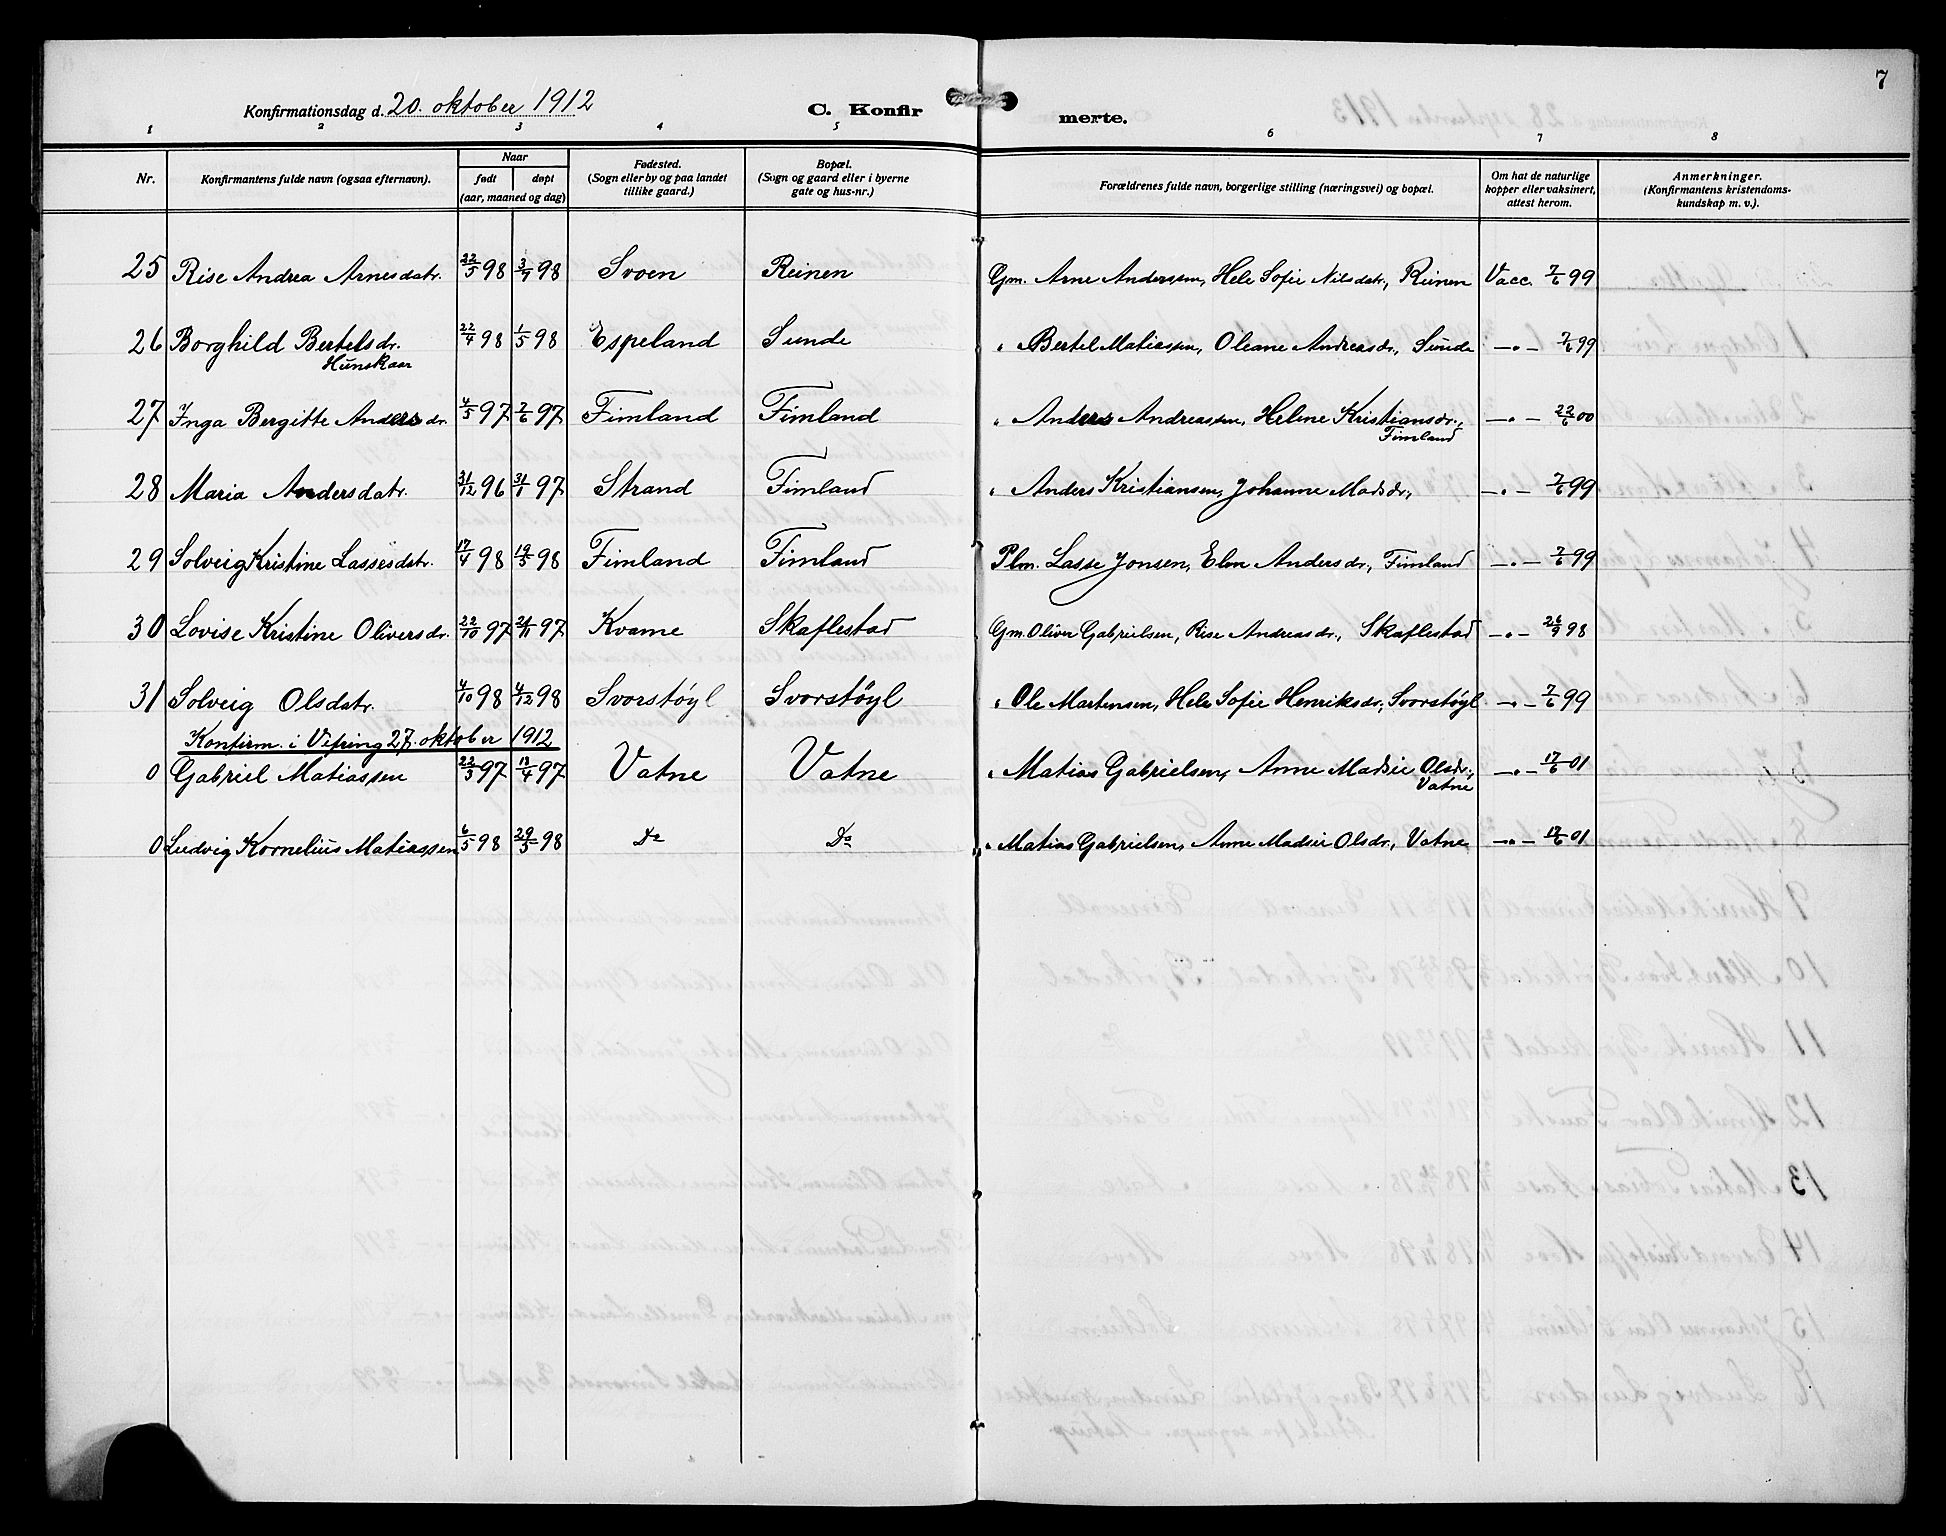 7
Konfirmationsdag d. 20. oktober 1912 C. Konfir merte.
1 2 3 4 5 6 7 8
Nr. Konfirmantens fulde navn (ogsaa efternavn). Naar født døpt (aar, maaned og dag) Fødested. (Sogn eller by og paa landet tillike gaard.) Bopæl. (Sogn og gaard eller i byerne gate og hus-nr.) Forældrenes fulde navn, borgerlige stilling (næringsvei) og bopæl. Om hat de naturlige kopper eller vaksinert, attest herom. Anmerkninger. (Konfirmantens kristendoms- kundskap m. v.).
25 Rise Andrea Arnesdatr. 22/5 98 3/7 98 Svoen Reinen Gm. Arne Anderssen, Hele Sofie Nilsdatr., Reinen Vacc. 7/6 99
26 Borghild Bertelsdr. 22/4 98 1/5 98 Espeland Sunde " Bertel Matiassen, Oleane Andreasdr., Sunde —"— 7/6 99
Hunskaar
27 Inga Bergitte Andersdr. 4/5 97 7/6 97 Fimland Fimland " Anders Andreassen, Helene Kristiansdr., —"— 22/6 00
Fimland
28 Maria Andersdatr. 31/12 96 31/1 97 Strand Fimland " Anders Kristiansen, Johanne Madsdr., —"— 7/6 99
29 Solveig Kristine Lassesdatr. 17/4 98 19/5 98 Fimland Fimland Plm. Lasse Jonsen, Elen Andersdr., Fimland —"— 7/6 99
30 Lovise Kristine Oliversdr. 22/10 97 21/11 97 Kvame Skaflestad Gm. Oliver Gabrielsen, Rise Andreasdr., Skaflestad —"— 26/9 98
31 Solveig Olsdatr. 4/10 98 4/12 98 Svorstøyl Svorstøyl " Ole Martensen, Hele Sofie Henriksdr., Svorstøyl —"— 7/6 99
Konfirm. i Vefring 27. oktober 1912
0 Gabriel Matiassen 22/3 97 18/4 97 Vatne Vatne " Matias Gabrielsen, Anne Madsie Olsdr., —"— 17/6 01
Vatne
0 Ludvig Kornelius Matiassen 6/5 98 29/5 98 Do Do " Matias Gabrielsen, Anne Madsie Olsdr., Vatne —"— 17/6 01